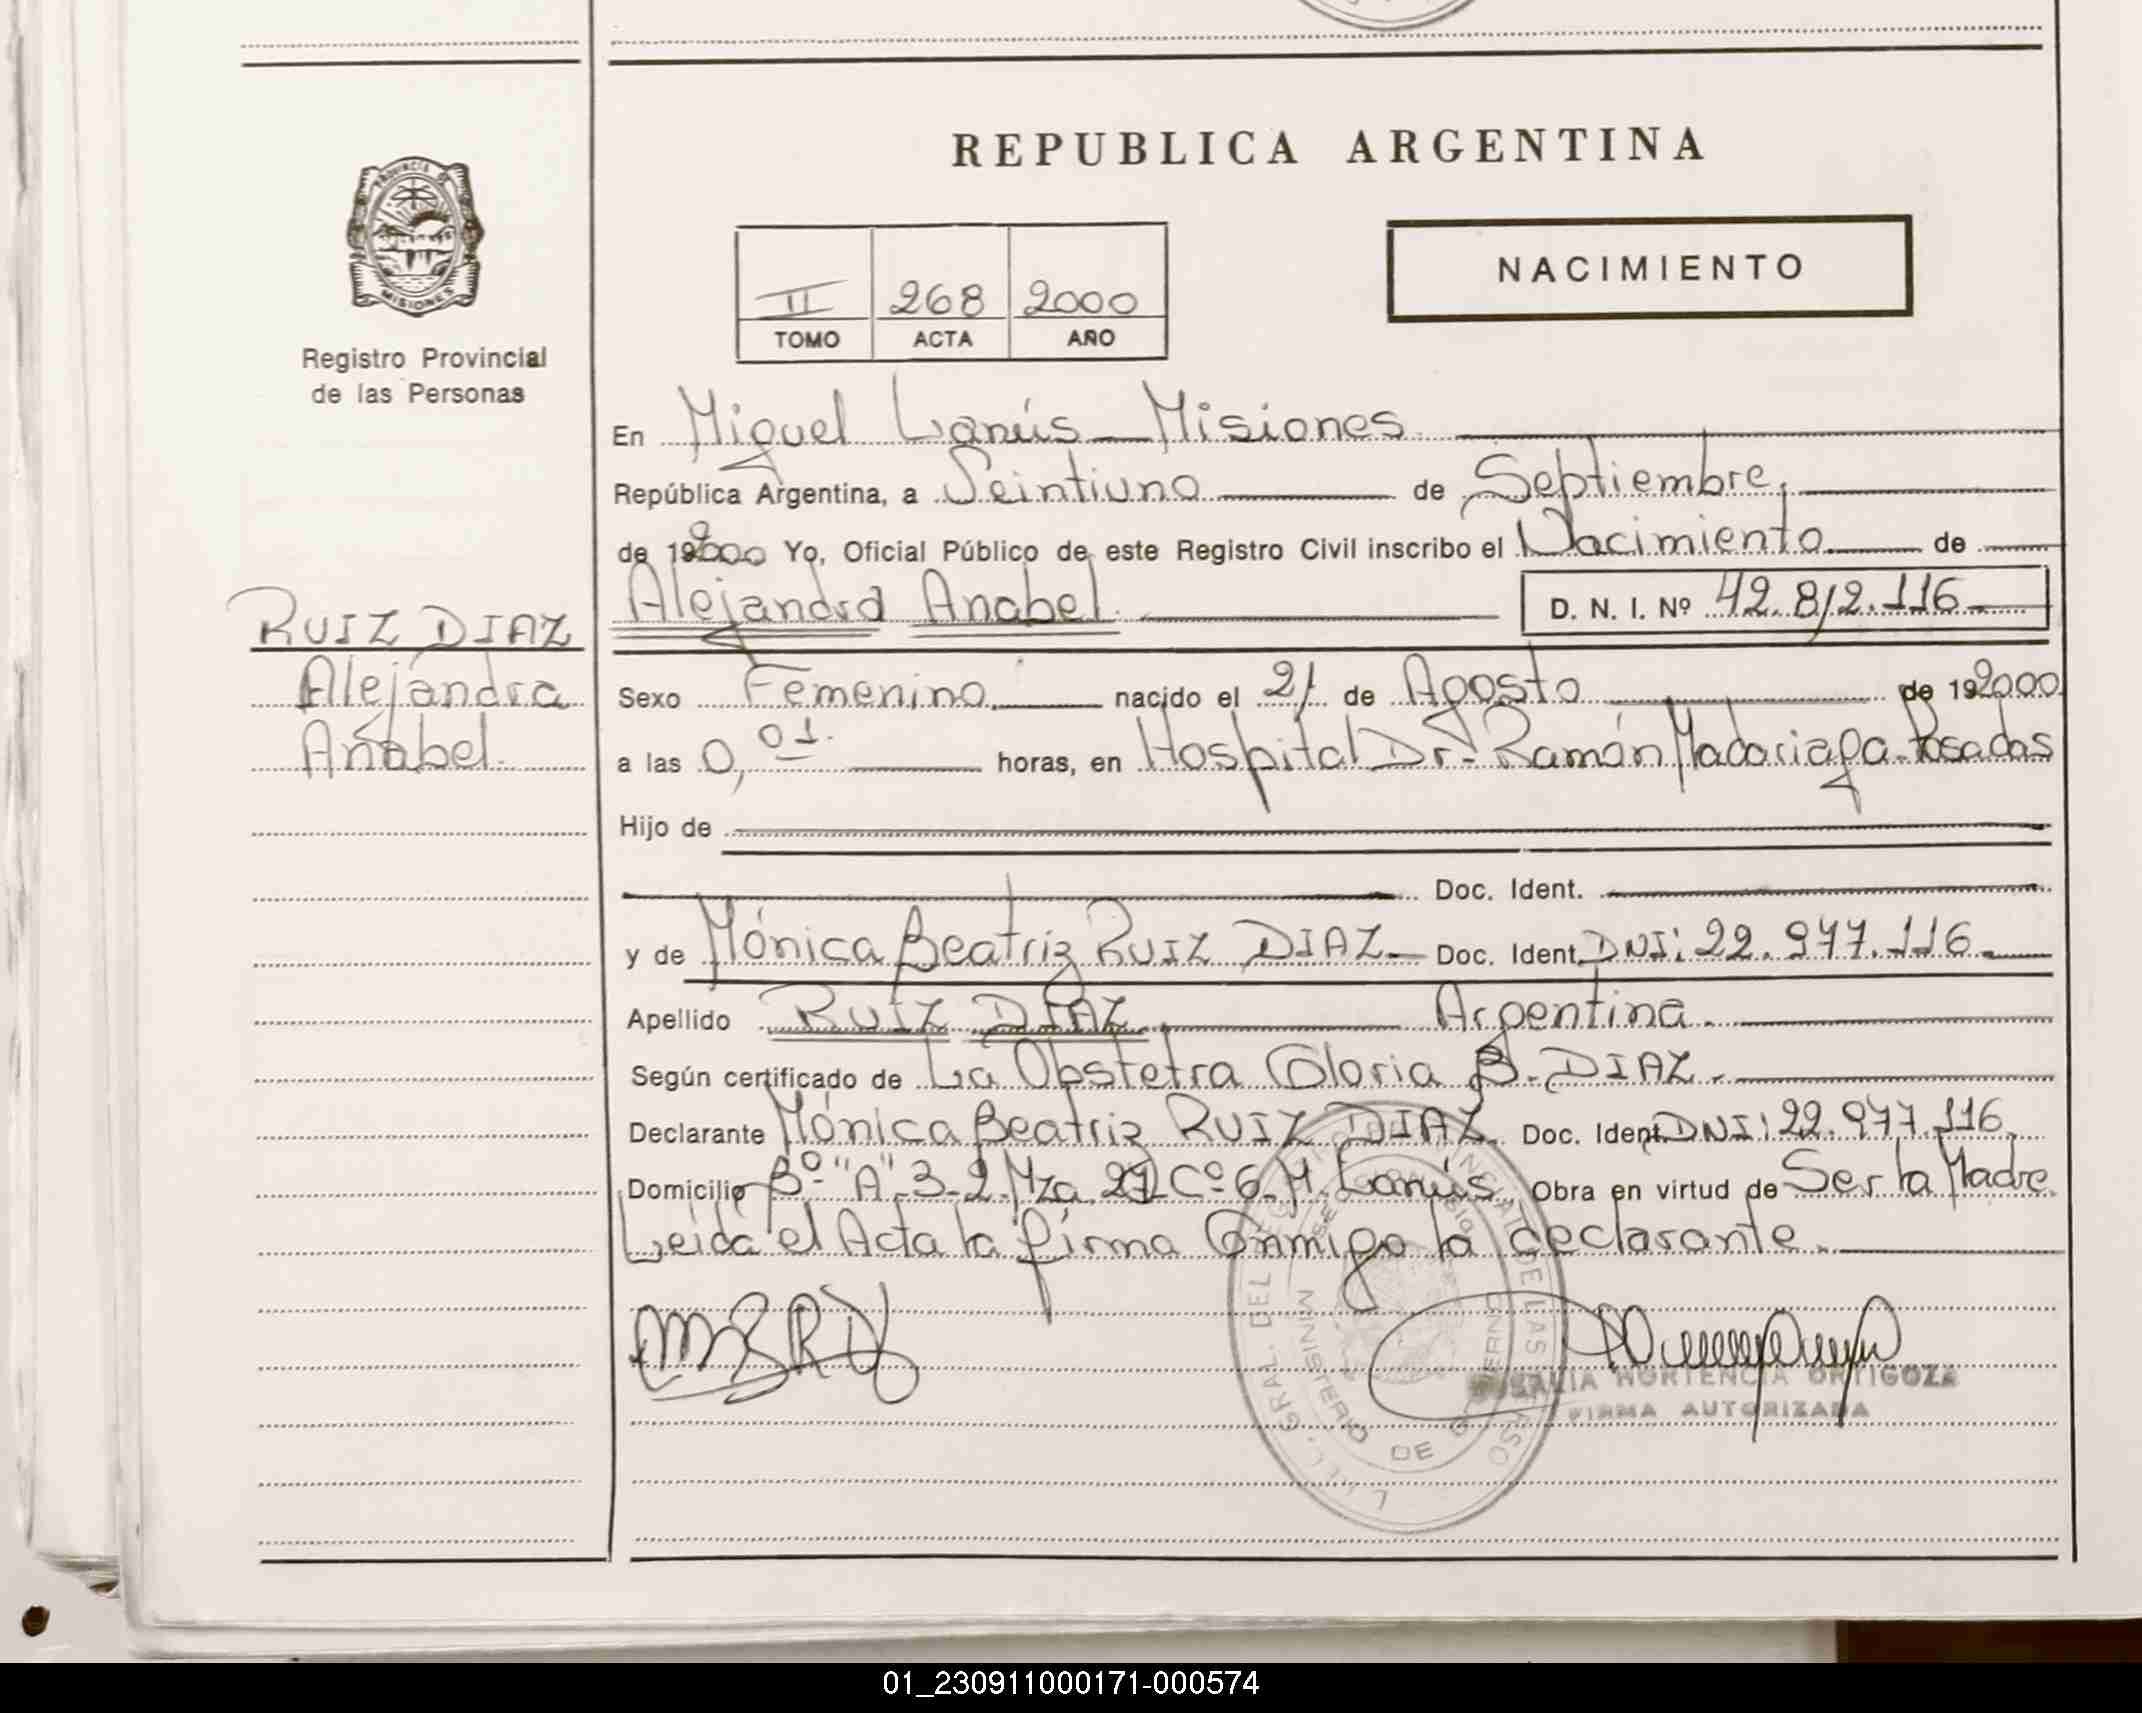 REPUBLICA ARGENTINA
PROVINCIA DE
MISIONES
Registro Provincial
de las Personas
NACIMIENTO
II 268 2000
TOMO ACTA AÑO
En Miguel Lanús - Misiones
República Argentina, a Veintiuno de Septiembre,
de 2000 Yo, Oficial Público de este Registro Civil inscribo el Nacimiento de
Alejandra Anabel. D. N. I. Nº 42.812.116-
RUIZ DIAZ
Alejandra
Anabel.
Sexo Femenino. nacido el 21 de Agosto de 192000
a las 0,01. horas, en Hospital Dr. Ramón Madariaga-Posadas
Hijo de
Doc. Ident.
y de Mónica Beatriz RUIZ DIAZ- Doc. Ident. DNI: 22.977.116-
Apellido RUIZ DIAZ. Argentina.
Según certificado de La Obstetra Gloria B. DIAZ.
Declarante Mónica Beatriz RUIZ DIAZ. Doc. Ident. DNI: 22.977.116.
Domicilio Bº "A" 3-2 Mza 27 Cº 6-M. Lanús. Obra en virtud de Ser la Madre.
Leída el Acta la firma Conmigo la declarante.
MBRD
HORTENCIA ORTIGOZA
FIRMA AUTORIZADA
MINISTERIO DE GOBIERNO
01_230911000171-000574